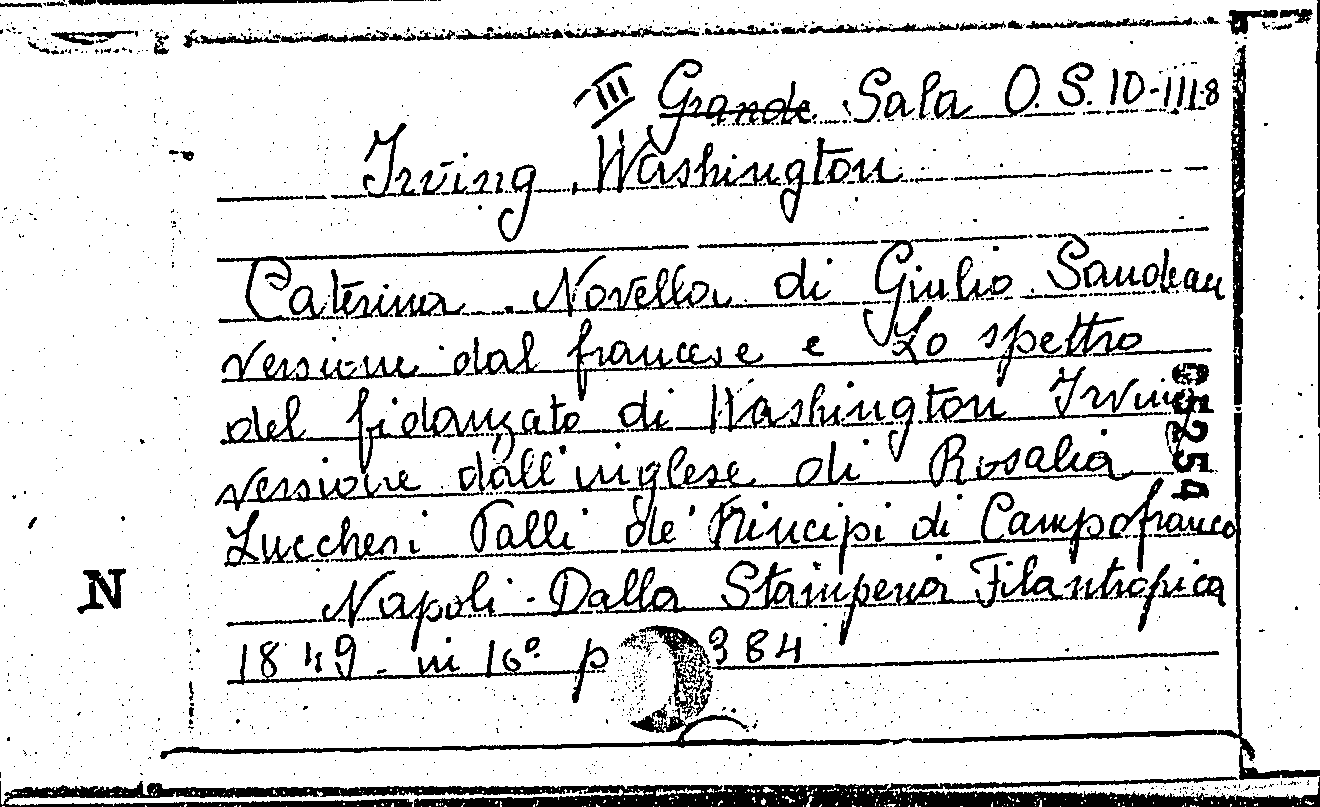 III Grande Sala O. S. 10-III-8
Irving, Washington
Caterina. Novella di Giulio Sandeau
versione dal francese e Lo spettro
del fidanzato di Washington Irving
versione dall'inglese di Rosalia
Luccheri Palli de' Principi di Campofranco
Napoli - Dalla Stamperia Filantropica
1849 - in 16° p 384
N